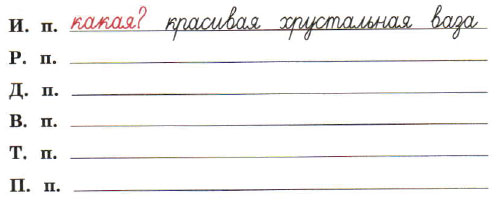 И. п. какая? красивая хрустальная ваза
Р. п.
Д. п.
В. п.
Т. п.
П. п.